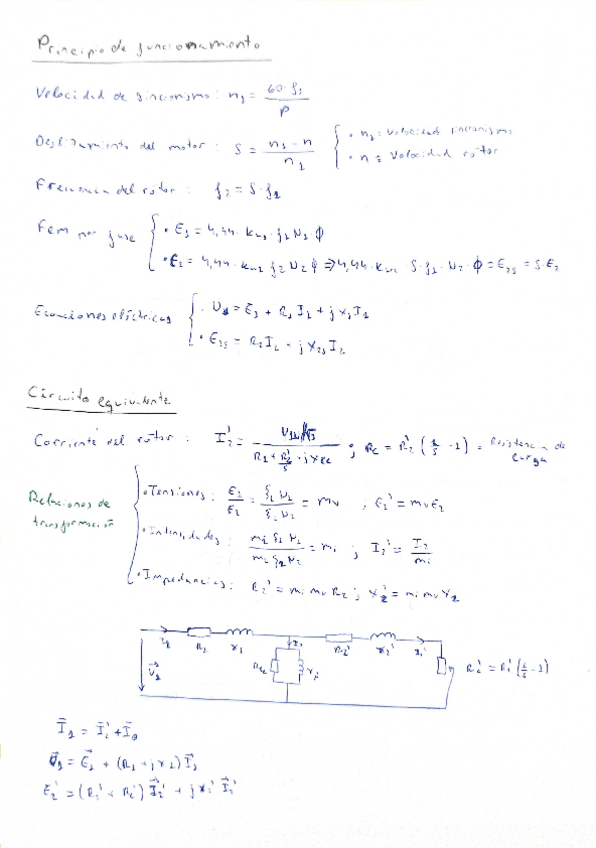 Principio de funcionamiento
Velocidad de sincronismo: n₁ = 60·f₁ / P
Deslizamiento del motor: S = (n₁ - n) / n₁ { • n₁ = Velocidad sincronismo
• n = Velocidad rotor
Frecuencia del rotor: f₂ = S·f₁
Fem por fase { • E₁ = 4,44·Kw₁·f₁ N₁ ϕ
• E₂ = 4,44·Kw₂ f₂ N₂ ϕ ⇒ 4,44·Kw₂·S·f₁·N₂·ϕ = E₂s = S·E₂
Ecuaciones eléctricas { • U₁ = E₁ + R₁I₁ + jX₁I₁
• E₂s = R₂I₂ + jX₂sI₂
Circuito equivalente
Corriente del rotor: I₂' = / R₁ + R₂'/S + jXcc ; Rc = R₂' (1/S - 1) = Resistencia de
carga
Relaciones de
transformación
• Tensiones: E₁/E₂ = ξ₁ N₁ / ξ₂ N₂ = mv ; E₂' = mv E₂
• Intensidades: m₁ ξ₁ N₁ / m₂ ξ₂ N₂ = mi ; I₂' = I₂ / mi
• Impedancias: R₂' = mi mv R₂ ; X₂' = mi mv X₂
I₁ R₁ X₁ R₂' X₂' I₂'
V₁ Xμ Rc' = R₂' (1/S - 1)
I₁ = I₂' + I₀
U₁ = E₁ + (R₁ + jX₁) I₁
E₂' = (R₂' + Rc') I₂' + jX₂' I₂'